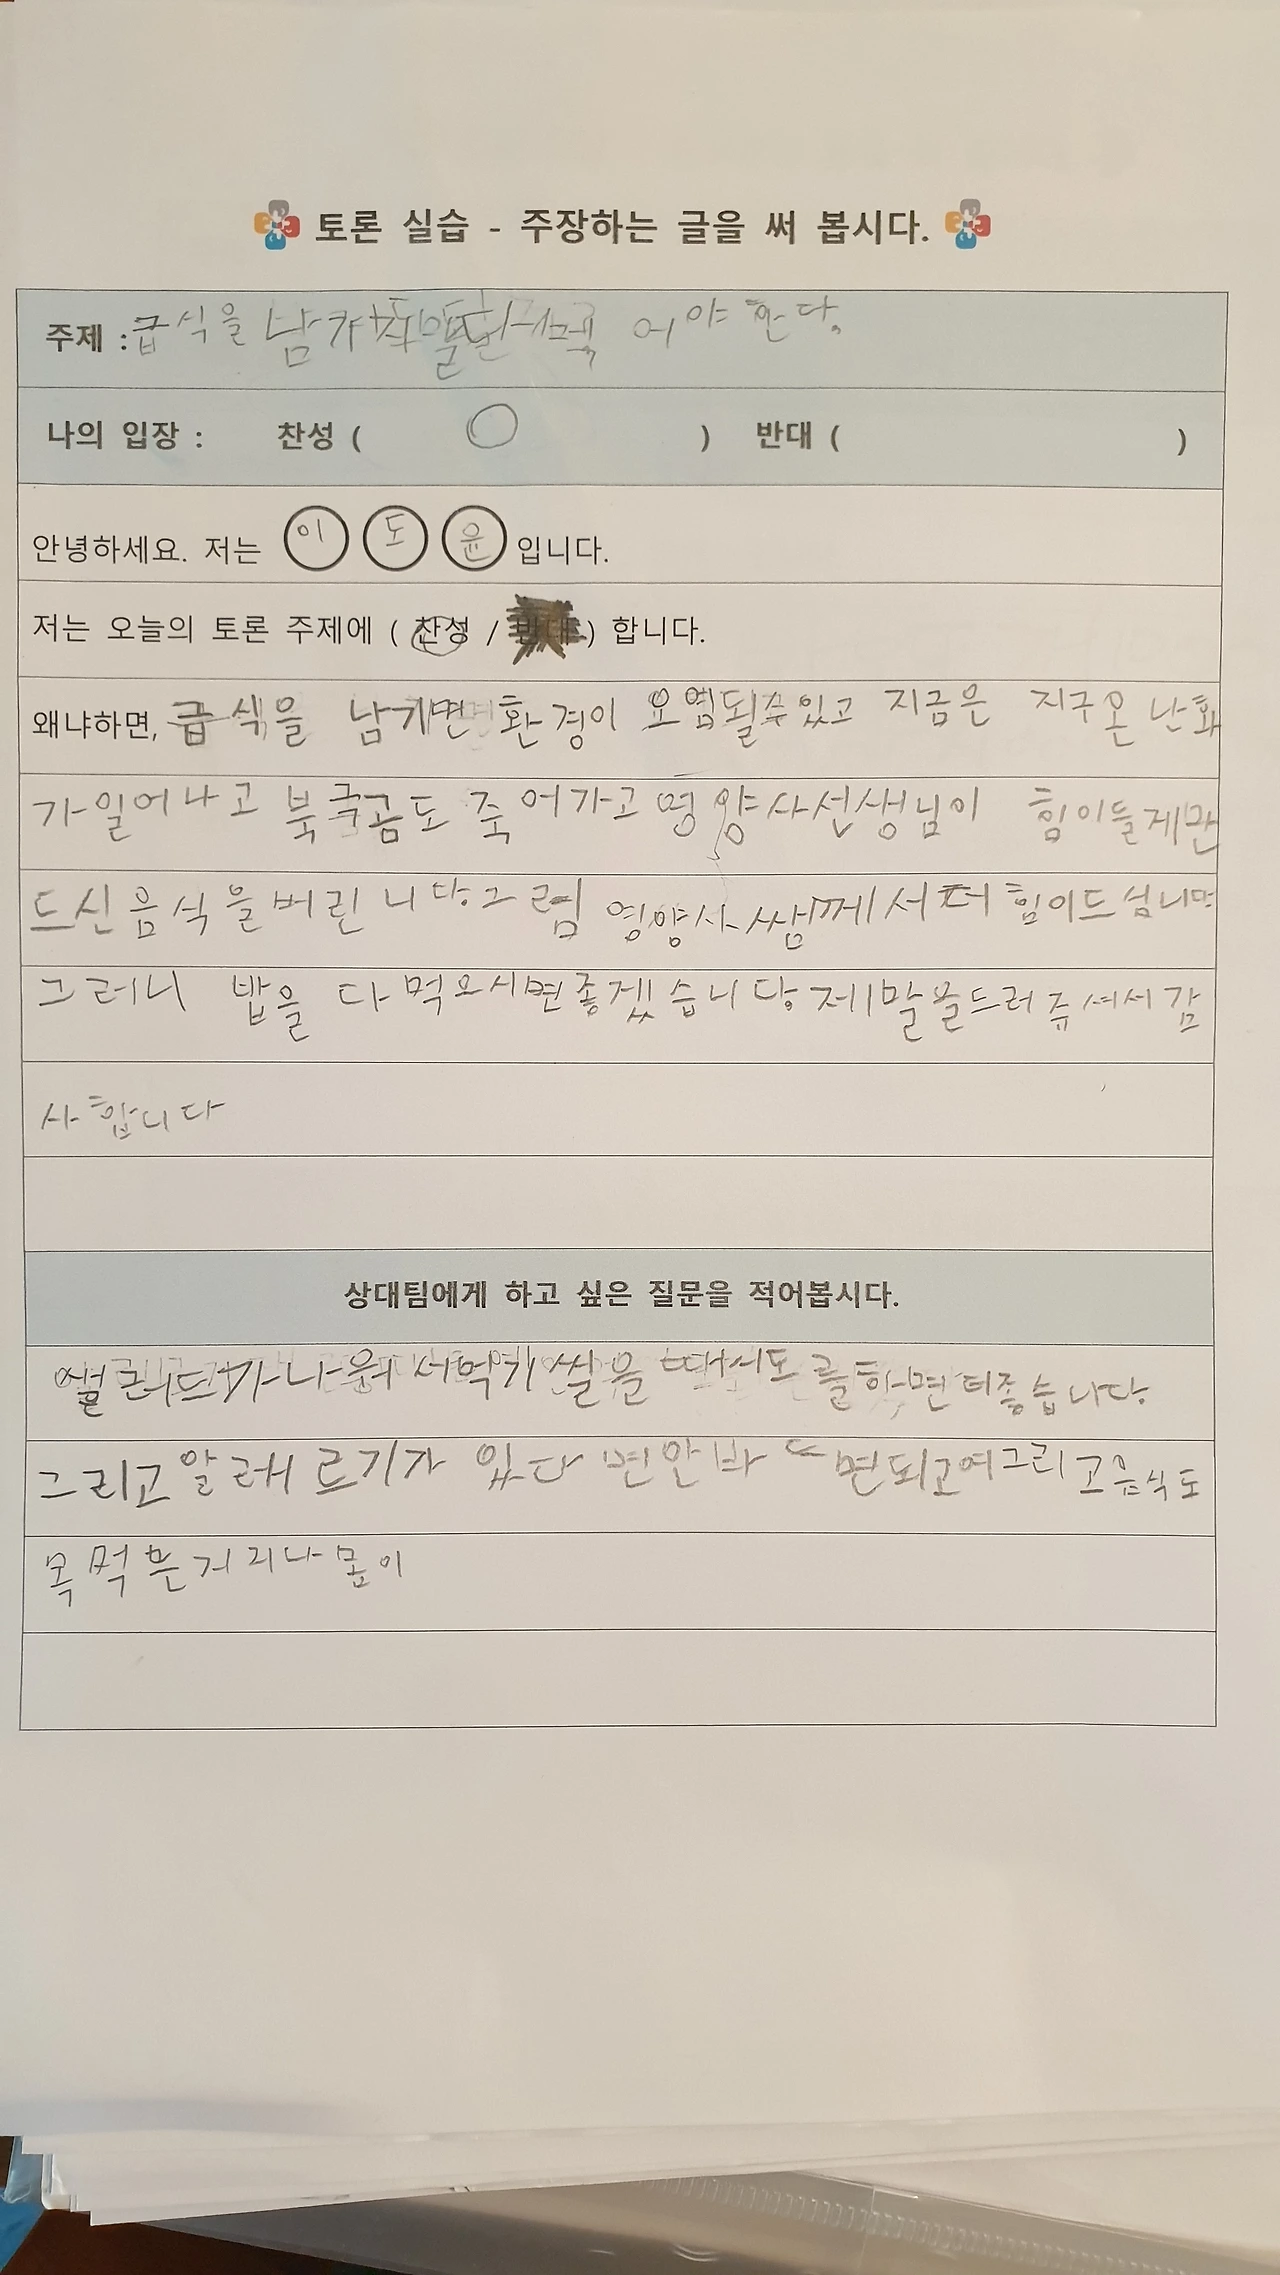 토론 실습 - 주장하는 글을 써 봅시다.
주제 : 급식을 어야 한다.
나의 입장 : 찬성 ( ○ ) 반대 ( )
안녕하세요. 저는 이 도 윤 입니다.
저는 오늘의 토론 주제에 ( 찬성 / 반대 ) 합니다.
왜냐하면, 급식을 남기면 환경이 오염될수있고 지금은 지구온난화
가일어나고 북극곰도 죽어가고 영양사선생님이 힘이들게만
드신음식을버린니다그럼 영양사쌤께서 힘이드섬니면
그러니 밥을 다먹으시면좋겠습니다 제말을드러쥬셔서감
사합니다
상대팀에게 하고 싶은 질문을 적어봅시다.
좋습니다
그리고알레르기가 있다면안 면되고여그리고음식도
목먹는거리나몸이